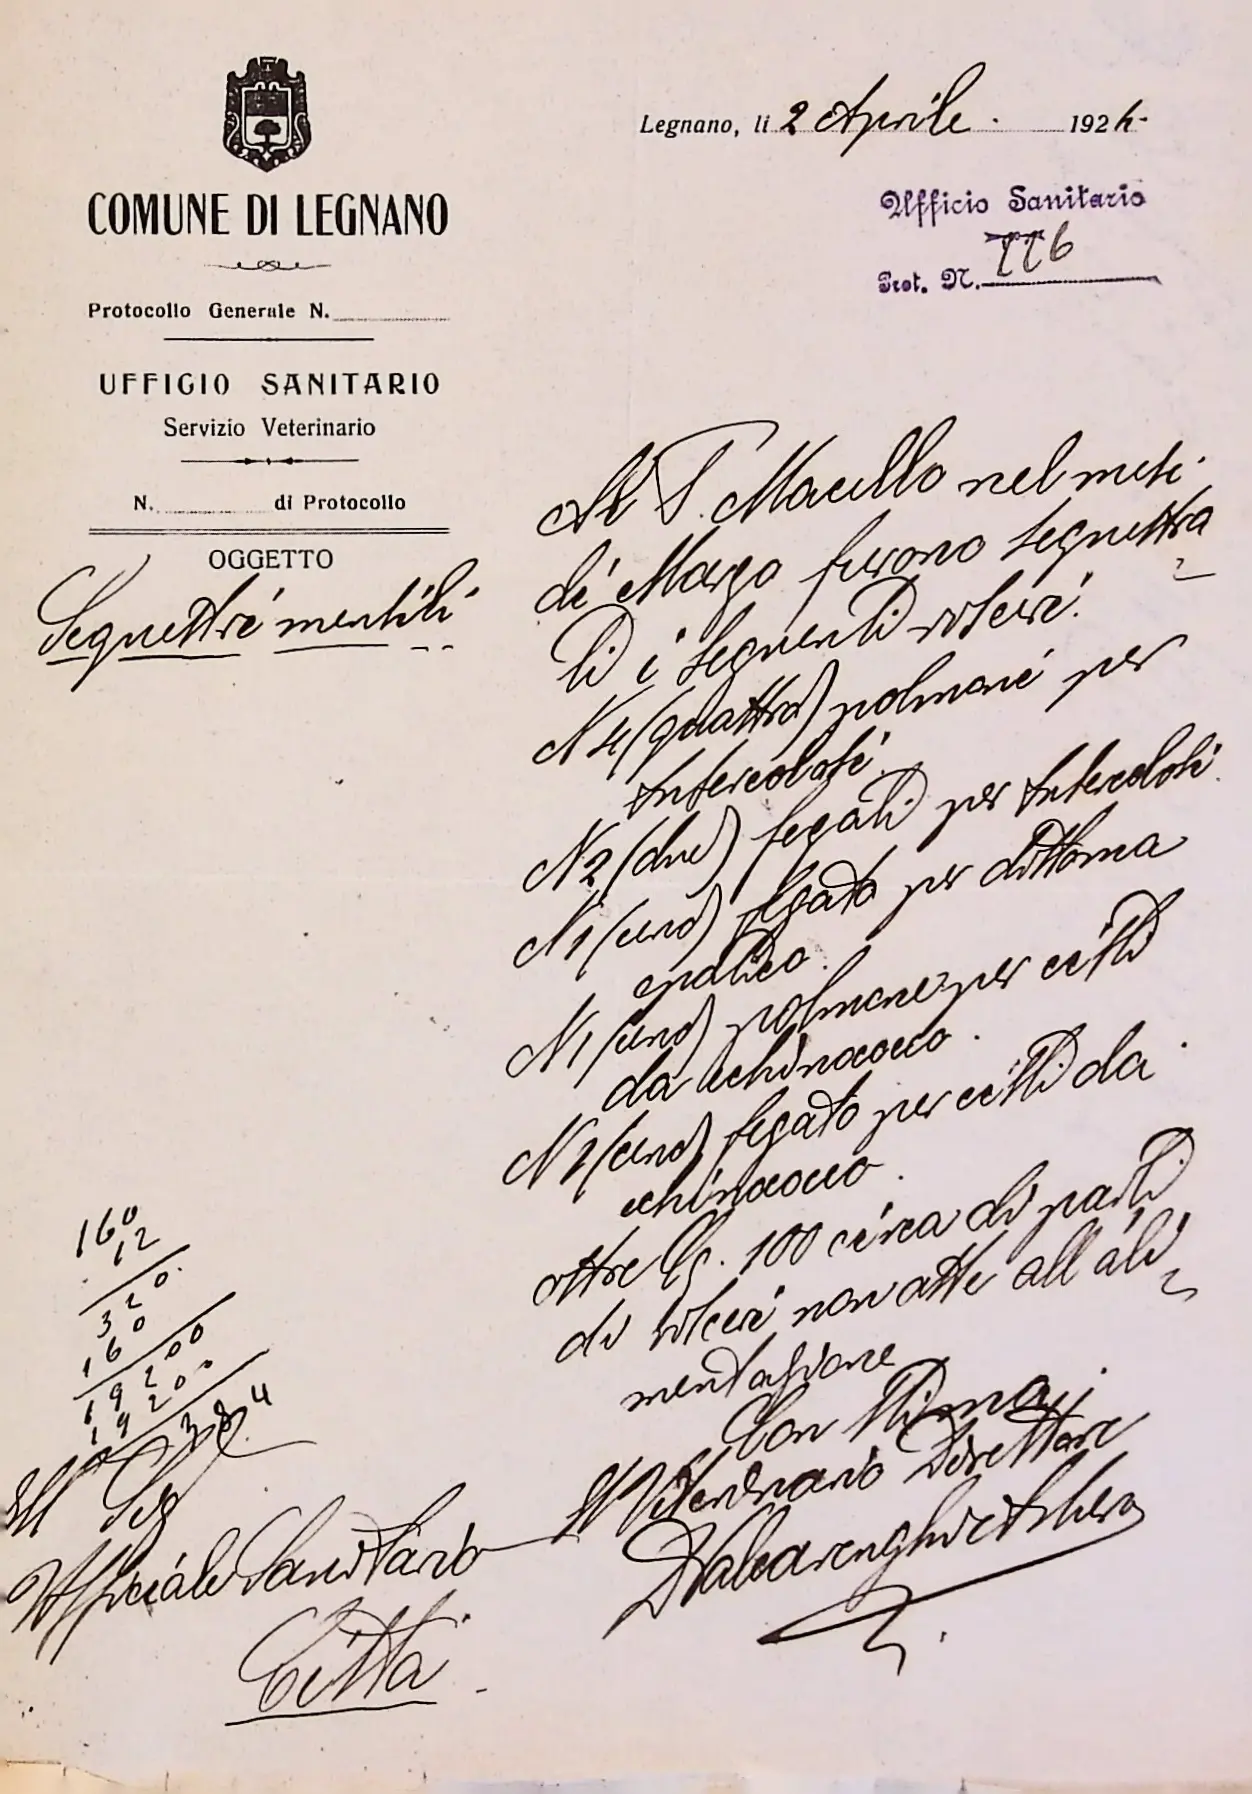 COMUNE DI LEGNANO
Protocollo Generale N.
UFFICIO SANITARIO
Servizio Veterinario
N. di Protocollo
OGGETTO
Sequestri mensili
Legnano, li 2 Aprile 1924
Ufficio Sanitario
Prot. N. 226
Al P. Macello nel mese
di Marzo furono sequestra
ti i seguenti visceri.
N 4 (quattro) polmoni per
tubercolosi
N 2 (due) fegati per tubercolosi
N 1 (uno) fegato per distoma
epatico.
N 1 (uno) polmone per cisti
da echinococco.
N 1 (uno) fegato per cisti da
echinococco.
oltre Cg. 100 circa di parti
di visceri non atte all'ali
mentazione
Con stima
Il Veterinario Direttore
160
12
320
160
19200
1920
384
Ill Sig
Ufficiale Sanitario
Città